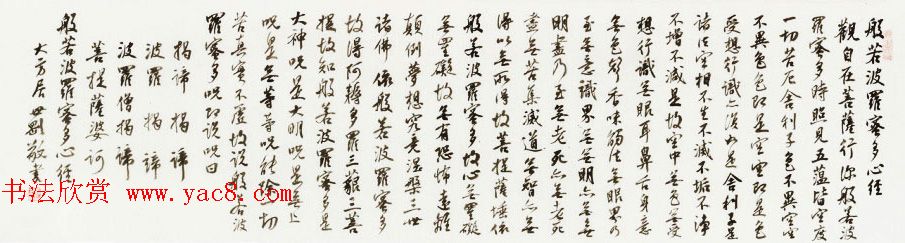 般若波羅蜜多心經
觀自在菩薩行深般若波
羅蜜多時照見五蘊皆空度
一切苦厄舍利子色不異空空
不異色色即是空空即是色
受想行識亦復如是舍利子是
諸法空相不生不滅不垢不淨
不增不減是故空中無色無受
想行識無眼耳鼻舌身意
無色聲香味觸法無眼界乃
至無意識界無無明亦無無
明盡乃至無老死亦無老死
盡無苦集滅道無智亦無
得以無所得故菩提薩埵依
般若波羅蜜多故心無罣礙
無罣礙故無有恐怖遠離
顛倒夢想究竟涅槃三世
諸佛依般若波羅蜜多
故得阿耨多羅三藐三菩
提故知般若波羅蜜多是
大神咒是大明咒是無上
咒是無等等咒能除一切
苦真實不虛故說般若波
羅蜜多咒即說咒曰
揭諦揭諦
波羅揭諦
波羅僧揭諦
菩提薩婆訶
般若波羅蜜多心經
大方居世剛敬書
书法欣赏
www.yac8.com